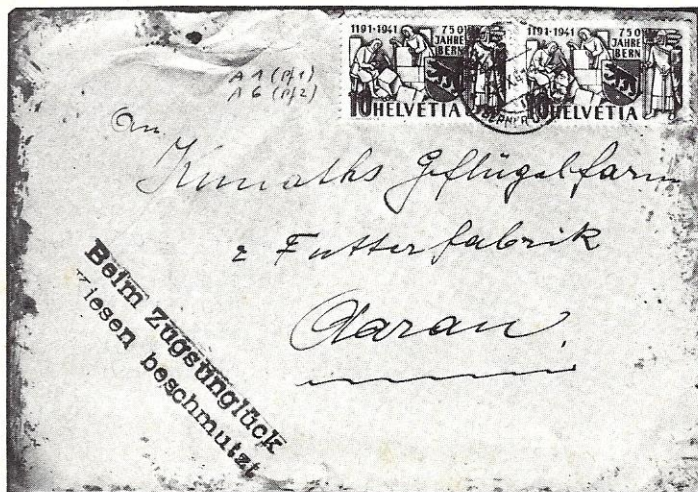 1191·1941 750 JAHRE BERN
10 HELVETIA
1191·1941 750 JAHRE BERN
10 HELVETIA
A 1 (Pf1)
A 6 (Pf2)
An
Kunaths Geflügelfarm
& Futterfabrik
Aarau.
Beim Zugsunglück
Kiesen beschmutzt